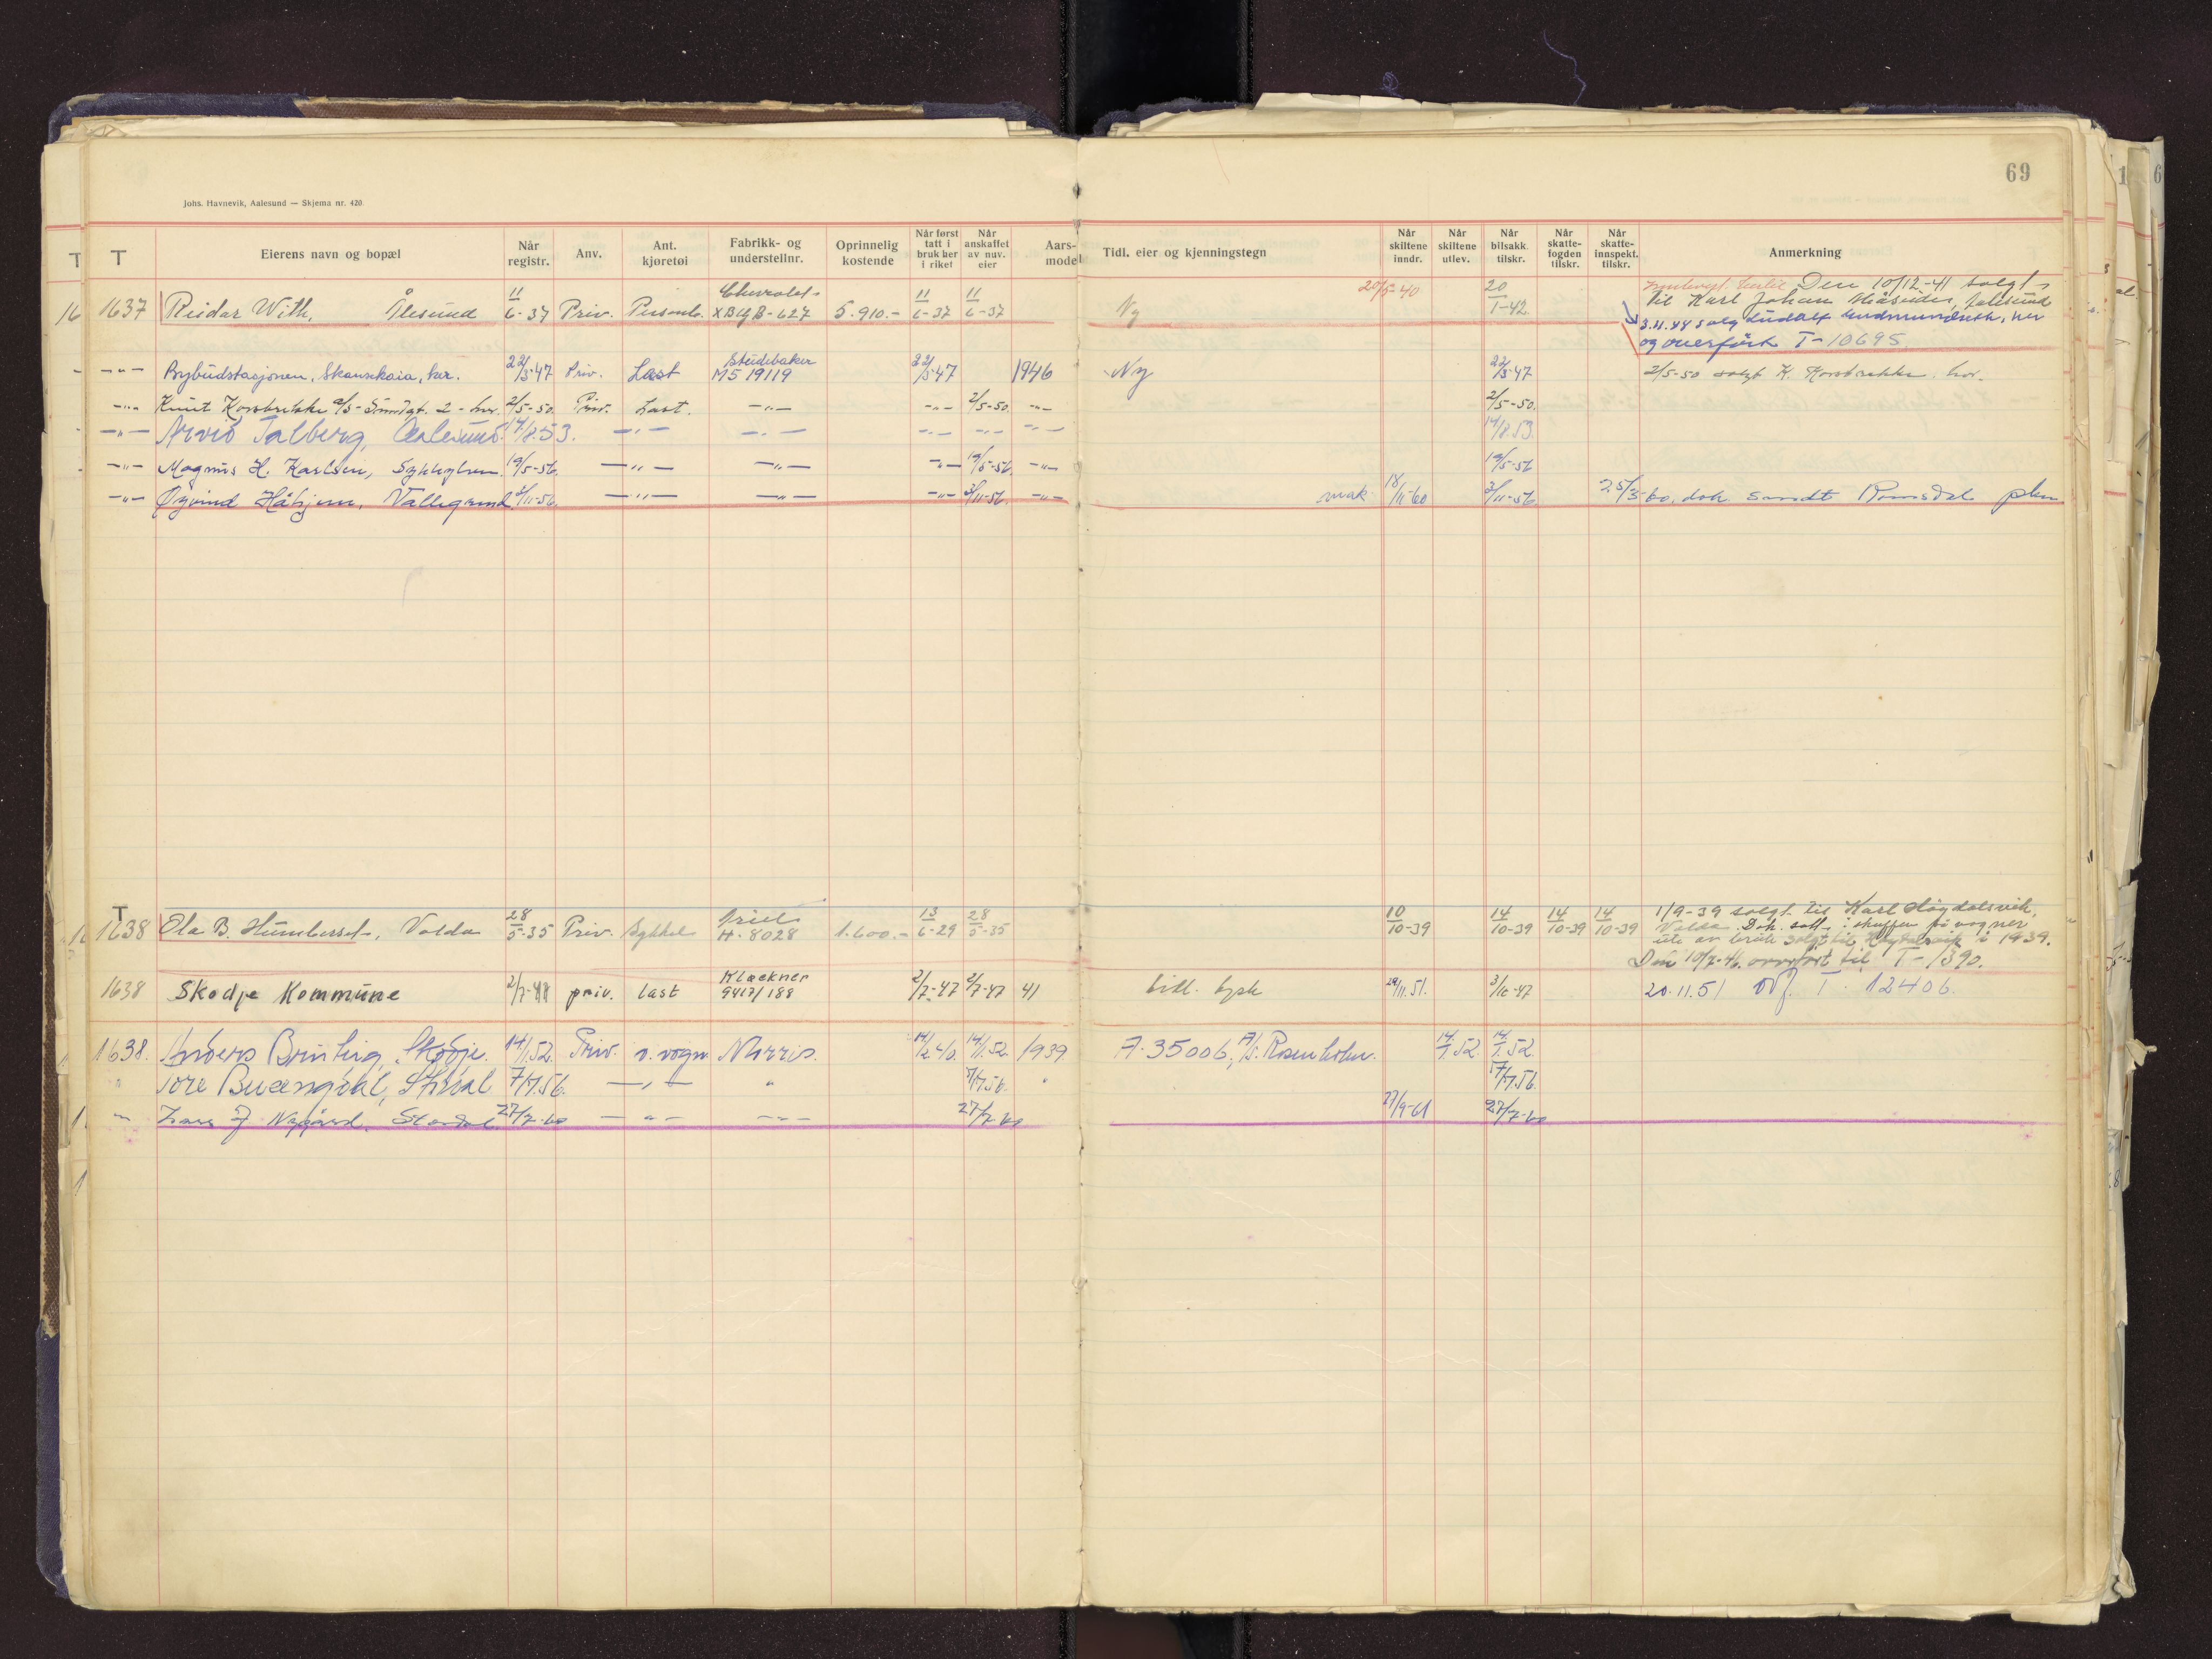 69
Johs. Havnevik, Aalesund — Skjema nr. 420.
T T Eierens navn og bopæl Når registr. Anv. Ant. kjøretøi Fabrikk- og understellnr. Oprinnelig kostende Når først tatt i bruk her i riket Når anskaffet av nuv. eier Aars-model Tidl. eier og kjenningstegn Når skiltene inndr. Når skiltene utlev. Når bilsakk. tilskr. Når skatte-fogden tilskr. Når skatte-innspekt. tilskr. Anmerkning
1637 Reidar With, Ålesund 11/6-37 Priv. Personb. Chevrolet XBYB-627 5.910.- 11/6-37 11/6-37 Ny 20/5-40 20/1-42 Den 10/12-41 solgt
til Karl Johan Aalesund
3.11.48 solg her
og overført T-10695
-"- Bybudstasjonen, Skanskaia, her. 22/5-47 Priv. Last Studebaker M5 19119 22/5-47 1946 Ny 22/5-47 2/5-50 solgt K. Korsbrekke her.
-"- Knut Korsbrekke 2 - her. 2/5-50. Priv. Last. -"- -"- 2/5-50. -"- 2/5-50.
-"- Arvid Talberg, Aalesund. 14/8.53. -"- -"- -"- -"- -"- 14/8.53.
-"- Magnus H. Karlsen, Sykkylven. 19/5-56. -"- -"- -"- 19/5-56. -"- 19/5-56
-"- Øyvind Håhjem, Vallegrend. 3/11-56. -"- -"- -"- 3/11-56. -"- vrak 18/11-60 3/11-56. 25/3-60. dok sendt Romsdal
T
1638 Ola B. Humberset, Volda 28/5-35 Priv. Sykkel Ariel H. 8028 1.600.- 13/6-29 28/5-35 10/10-39 14/10-39 14/10-39 14/10-39 1/9-39 solgt til Karl Høydalsvik,
Volda. Dok. satt i skuffen på vogner
ute av bruk solgt til Høydalsvik i 1939.
Den 10/7-46. overført til T-1390.
1638 Skodje Kommune 2/7-47 priv. last Kløckner 9417/188 2/7-47 2/7-47 41 tidl. tysk 29/11.51. 3/10-47 20.11.51 ovf. T. 12406.
1638. Anders Brusting, Skodje. 14/1.52. Priv. v. vogn Morris. 14/2.40. 14/1.52. 1939 A. 35006, A/S. Rosenholm. 14/1.52. 14/1.52.
" Tore Stordal 7/7.56. -"- " 7/7.56. " 7/7.56.
" Lars J. Nygård. Stordal. 27/7-60 -"- -"- 27/7-60 27/9-61 27/7-60